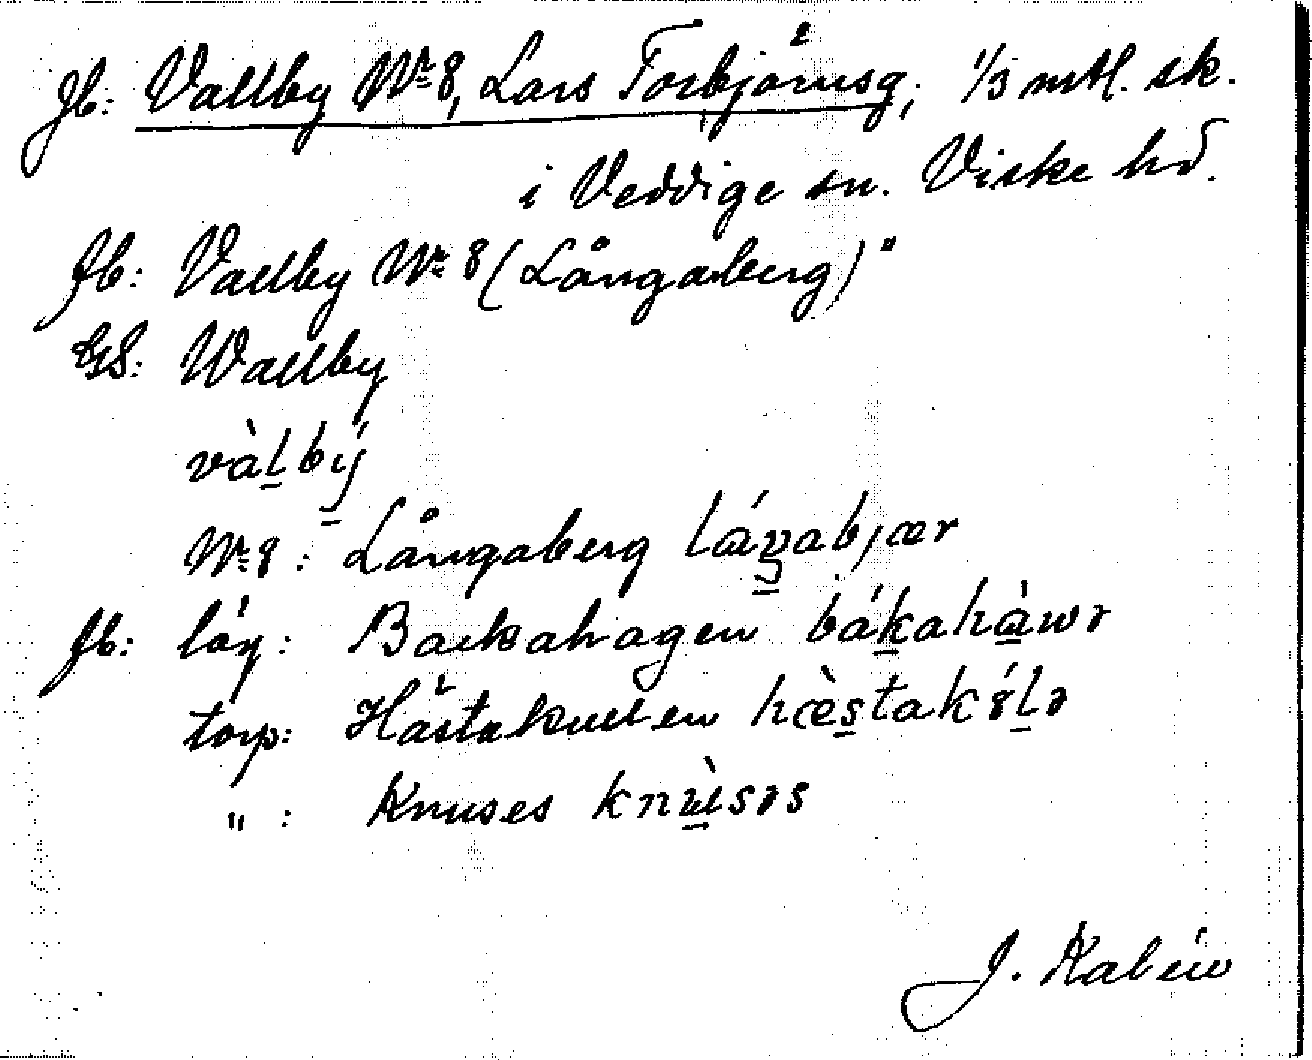 Jb: Vallby Nr 8, Lars Torbjörnsg, 1/3 mtl. sk.
i Veddige sn. Viske hd.
Jb: Vallby Nr 8 (Långaberg)"
GS: Wallby
vàl̠bý̠
Nr 8: Långaberg láŋ̠abjær
Jb: läg: Backahagen bák̠ahàwə
torp: Hästakullen hæ̀s̠takɤ́l̠ə
" : Knuses knùsəs
J. Kalén